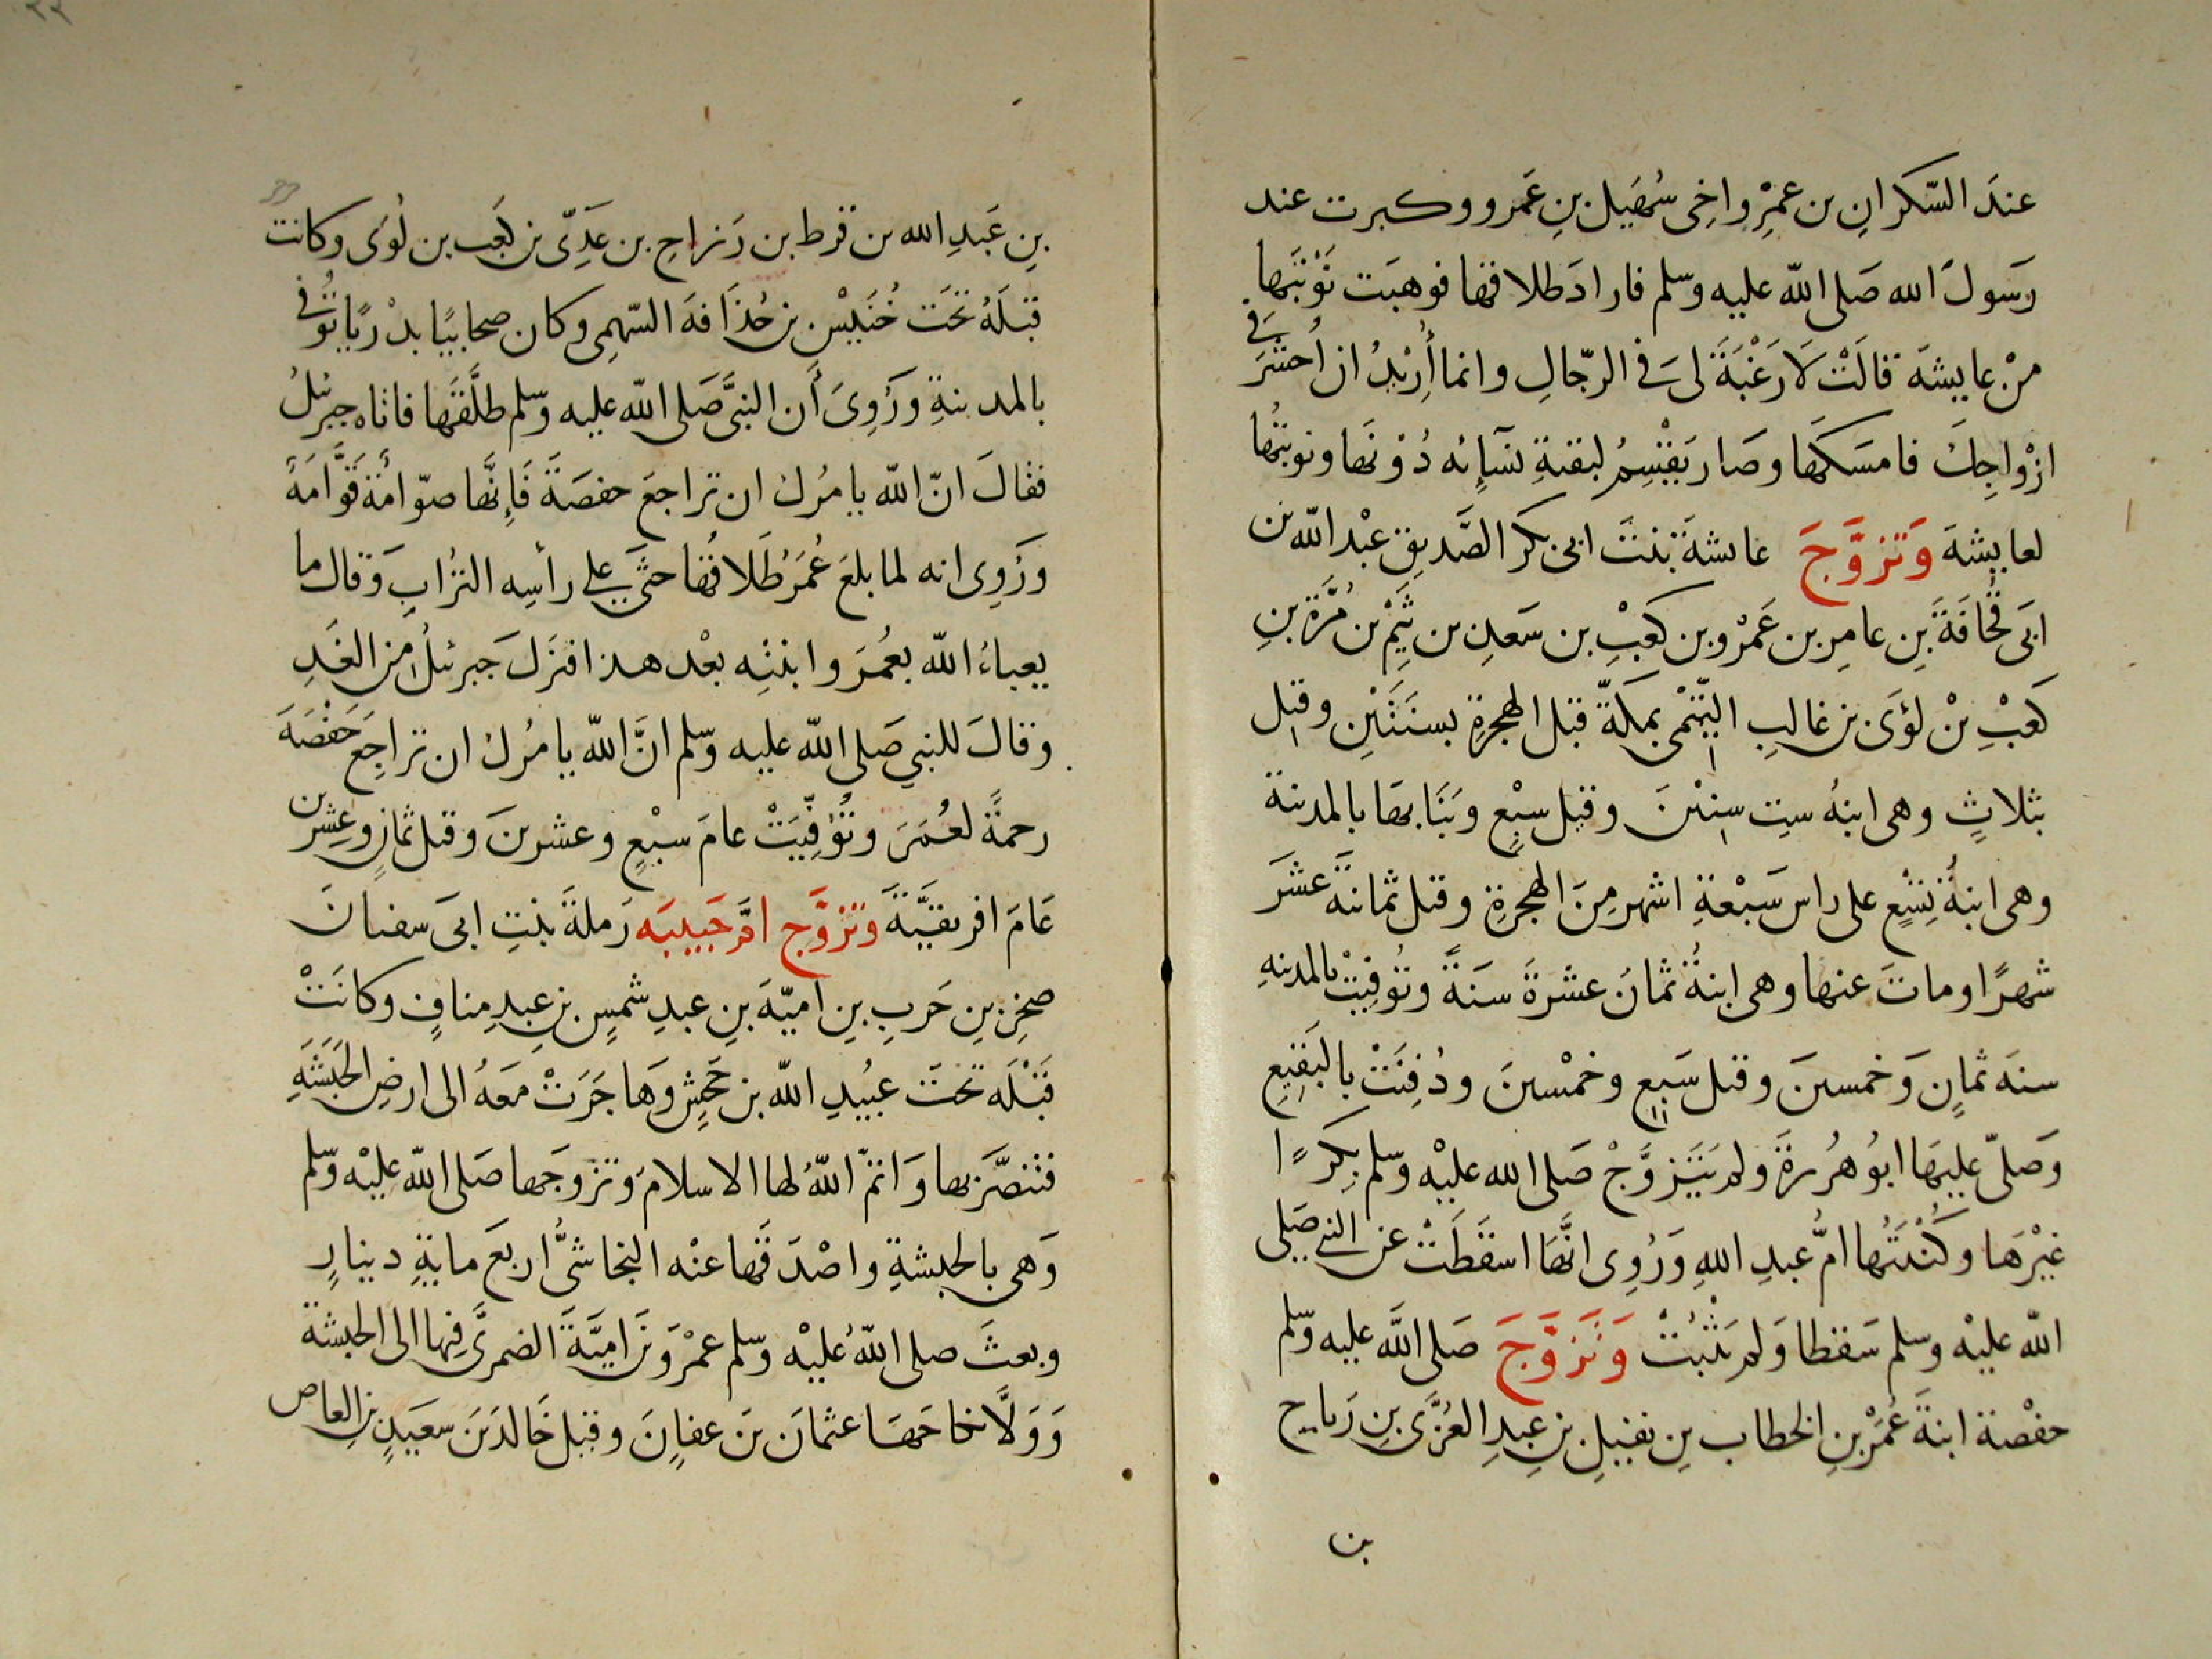 عندَ السّكرانِ بن عمرٍو اخِى سُهَيل بنِ عَمرو وكبرت عند
رَسَولَ الله صَلى الله عليه وسلم فارادَ طلاقها فوهبَت نَوْبَتَها
منْ عايشةَ قالَتْ لَا رَغْبَةَ لى فى الرّجالِ وانما أُرِيْدُ ان اُحشَرَ فى
ازْواجِكَ فامسَكَها وصَار يَقْسِمُ لبقيةِ نسَآئه دُوْنَها ونوبتُها
لعايشةَ وَتَزوَّجَ عايشةَ بنتَ ابى بَكر الصَّديق عبْد الله بن
ابى قُحَافَةَ بنِ عامِرِ بن عَمْرو بن كعْبِ بن سَعدِ بن تَيْم بن مُرَّةَ بنِ
كَعْبِ بْن لؤَى بن غالبِ التَّيْمى بمكَّةَ قبْل الهجرةِ بسنَتَيْنِ وقيل
بثلاثٍ وهى ابنةُ ستِ سِنينَ وقيل سبْعٍ وبَنَا بها بالمدينة
وهى ابنةُ تِسْعٍ على راس سَبْعةِ اشهر مِنَ الهجرةِ وقيل ثمانيةَ عشَرَ
شهرًا وماتَ عنها وهى ابنةُ ثمانَ عشْرةَ سنَةً وتُوفيتْ بالمدينهِ
سنهَ ثمانٍ وَخمسينَ وقيل سَبعٍ وخمْسينَ ودُفِنَتْ بالبَقِيْعِ
وَصَلّى عليهَا ابوُ هُرُيرةَ ولم يَتَزوَّجْ صَلى الله عليْه وسلم بِكرًا
غيْرهَا وكُنْيَتُها امُّ عبدِ اللهِ وَرُوِى انَّهَا اسقَطَتْ عن النبى صَلى
الله عليْه وسلم سَقطا وَلم يَثْبُتْ وَتَزوَّجَ صَلى اللهَ عليه وسلم
حفْصة ابنةَ عُمَرْ بنِ الخطاب بنِ نفيلِ بنِ عبدِ العُزَّى بنِ رَياح
بن
بنِ عَبدِ الله بن قرط بن رَزاحِ بن عَدِىّ بن كَعْب بن لُؤى وكانت
قبلَهُ تحَتَ خُنَيْس بن حُذَافَهَ السّهمِى وكان صحابيًا بدْريًا تُوُفى
بالمدينةِ ورُوِىَ أَن النبىَّ صَلى الله عليه وسّلم طلَّقَها فاتاه جبرئلُ
فقالَ انّ الله يامُرُك ان تراجعَ حفصَةَ فَإِنَّها صوّامةَ قَوَّامَةَ
ورُوِى انه لما بلغَ عُمَرُ طَلاقُها حثَى على رأسِه الترُابِ وَقال ما
يعباءُ الله بعُمَرَ وابنتِه بعْد هذا فنزَلَ جبرئلُ من الغَدِ
وقالَ للنبي صَلى الله عليه وسّلم انَّ الله يامُرُكَ ان تراجِعَ حَفْصَهَ
رحمةً لعُمَرَ وتُوُفِّيَتْ عامَ سبْعٍ وعشرينَ وقيل ثمانٍ وعِشرين
عَامَ افريقيَّةَ وَتَزوَّج امَّ حَبيبَه رَملةَ بنتِ ابى سفيانَ
صخرِ بنِ حَربِ بنِ اميّةَ بنِ عبدِ شمسِ بنِ عبدِ منافٍ وكانَتْ
قَبْلَه تحتَ عبُيدِ الله بن جَحْشٍ وَهَاجَرَتْ مَعَهُ الى ارضِ الحَبَشَهِ
فتنصَّرَ بها وَاتمّ اللهُ لها الاسلامَ وَتَزوجَها صَلى الله عليْه وسّلم
وَهى بالحبشةِ واصْدَقَها عنْه النجاشىُّ اربعَ مايةِ دينارٍ
وبعثَ صلى اللهُ عليْه وسّلم عمْرَو بن اميَّةَ الضمرىَّ فيها الى الحبشة
وَوَلَّا نكاحَهَا عثمانَ بن عفانَ وقيل خَالدَ بن سعيدِ بن العاص